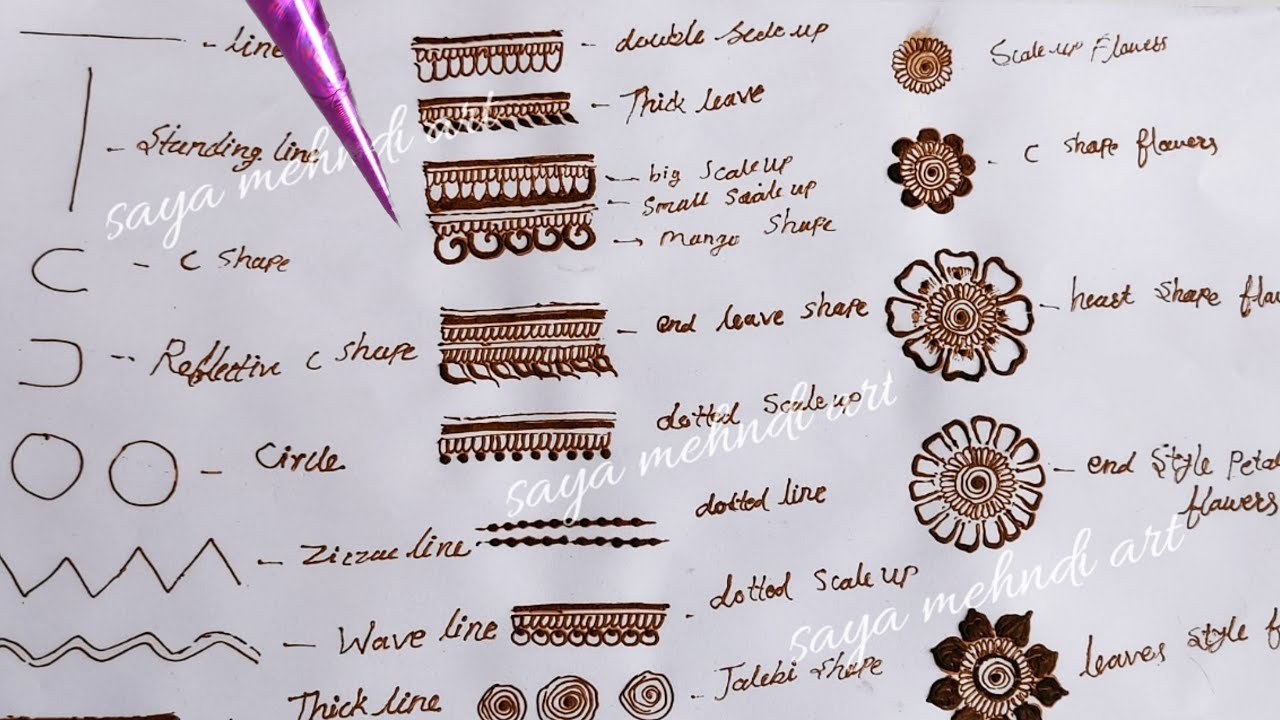 - line
- Standing line
- C shape
-- Reflective C shape
- Circle
- Ziczac line
- Wave line
Thick line
- double Scale up
- Thick leave
- big Scale up
Small Scale up
→ Mango Shape
- end leave shape
dotted Scale up
dotted line
- dotted Scale up
- Jalebi Shape
Scale up Flowers
- C shape flowers
- heart Shape fla
- end Style Petal
flowers
leaves style f
saya mehndi art
saya mehndi art
saya mehndi art